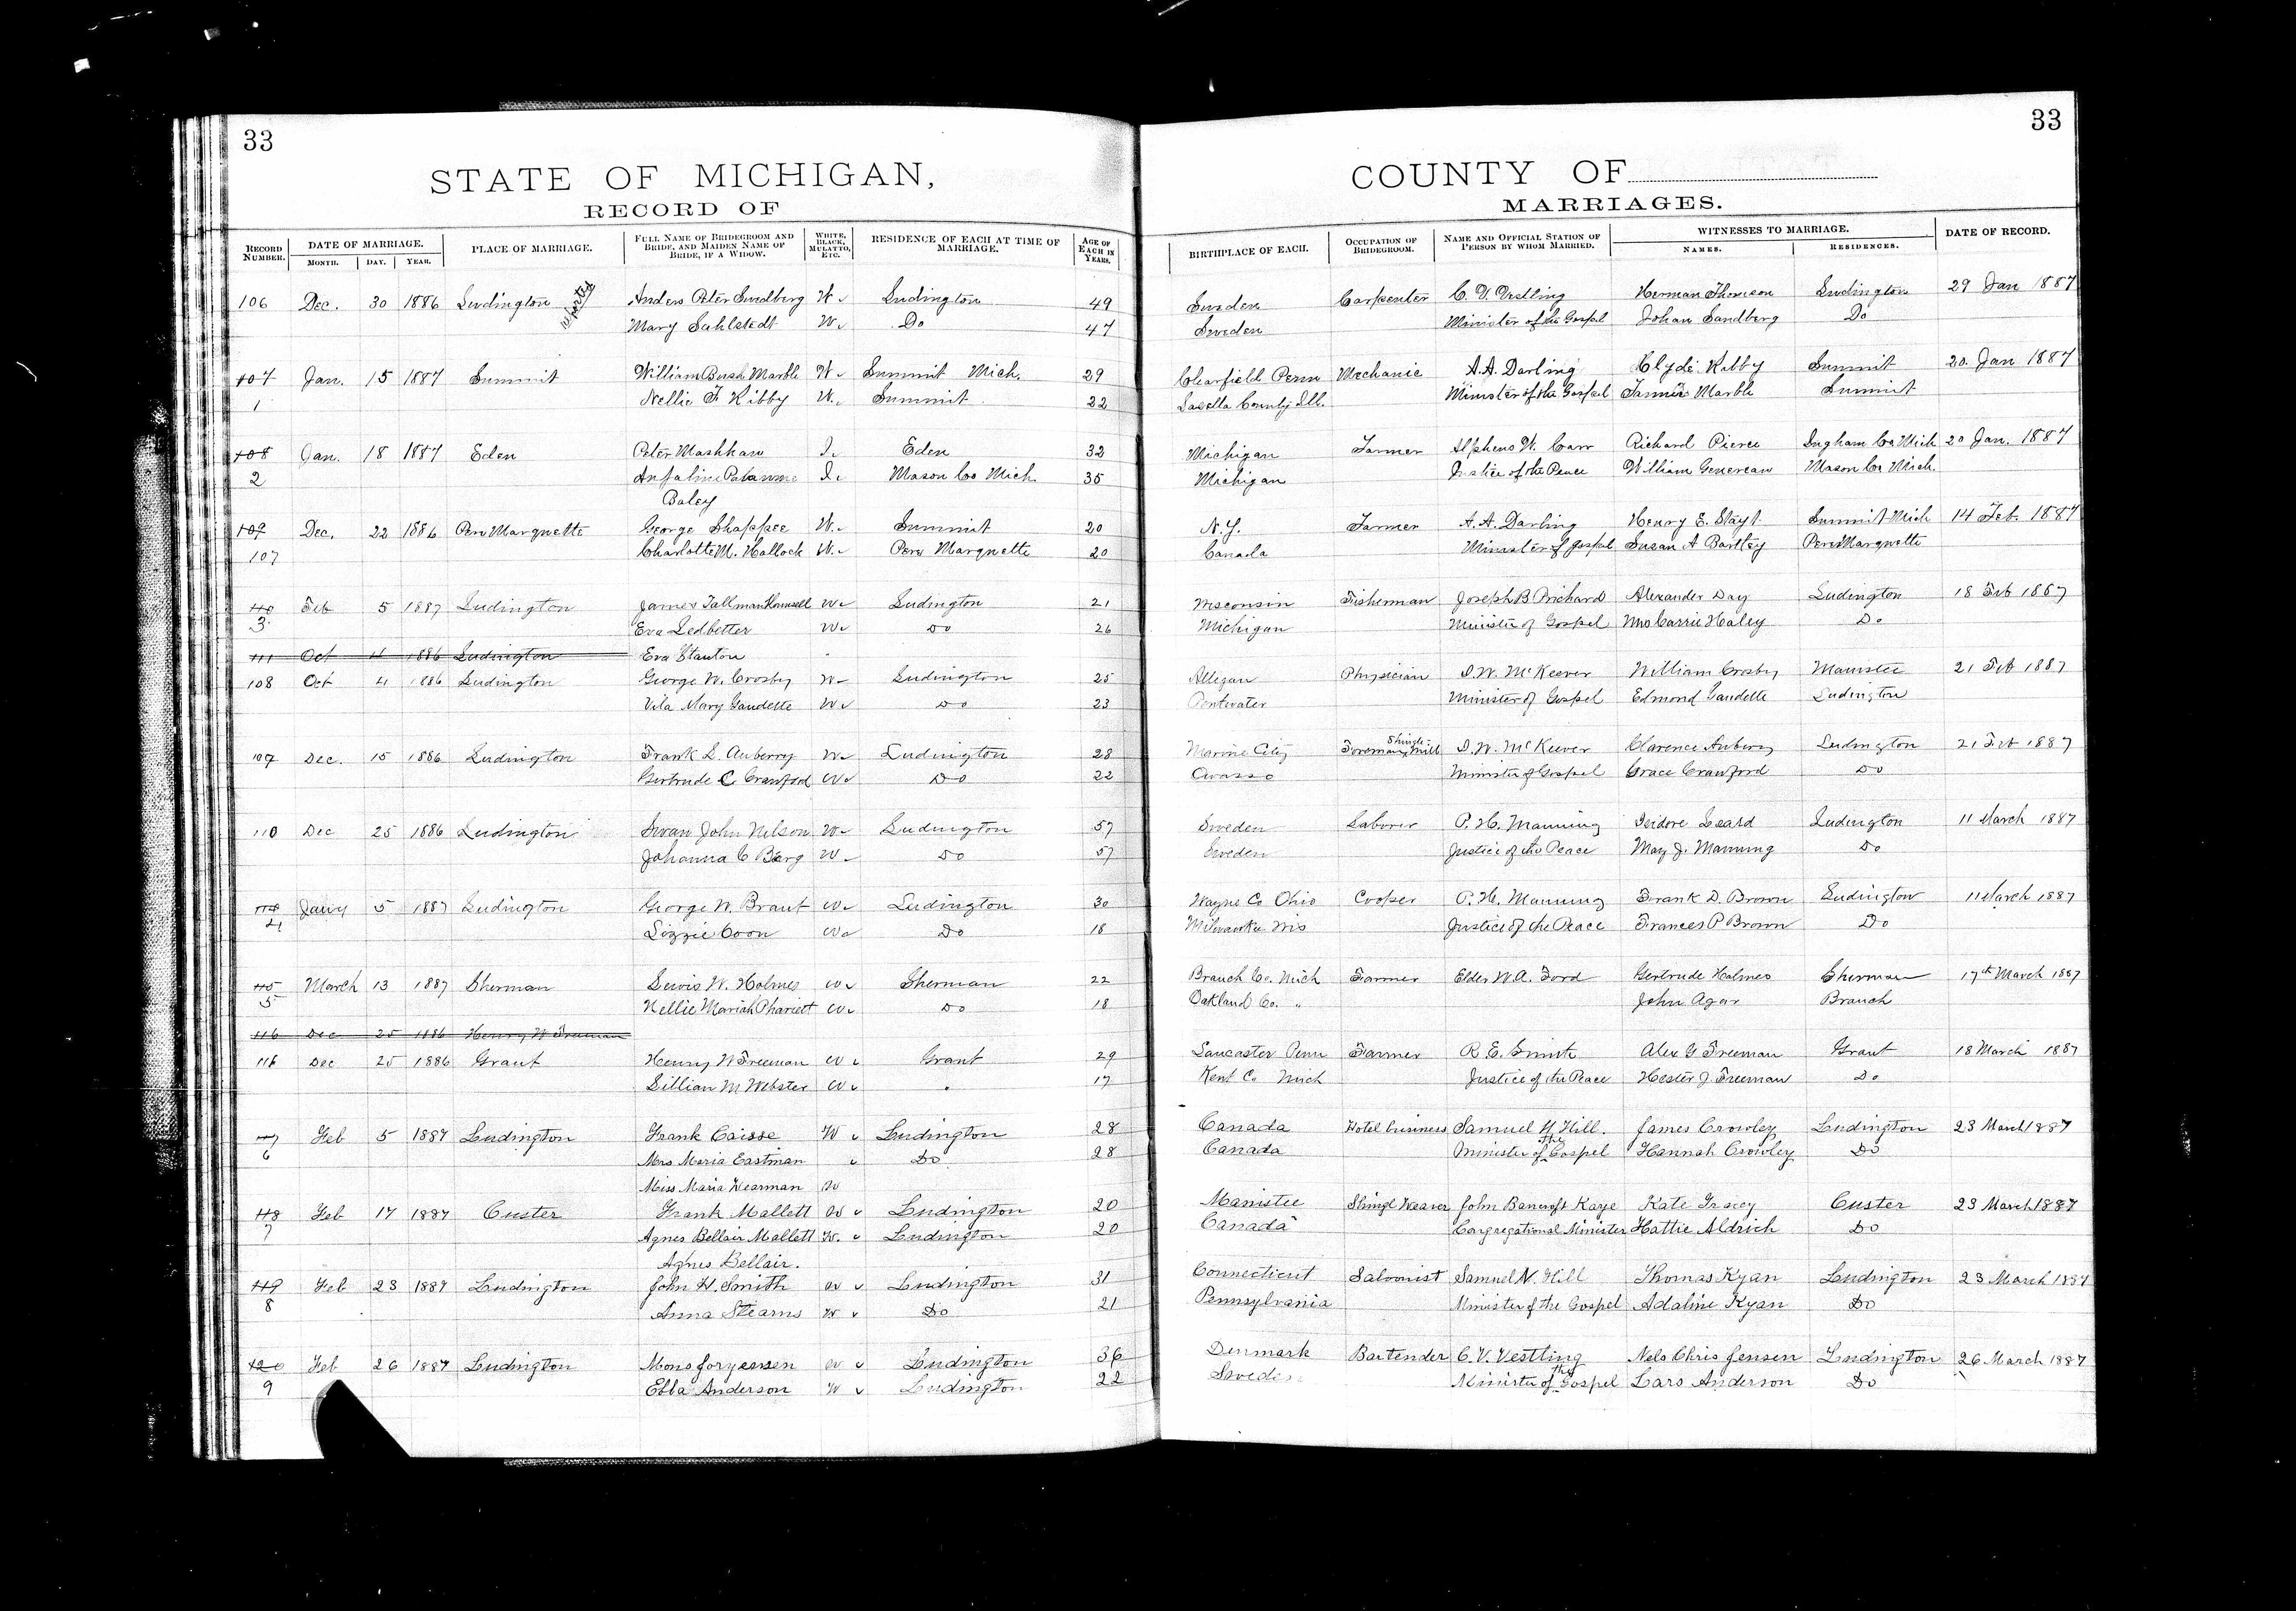 33
33
STATE OF MICHIGAN,
COUNTY OF
RECORD OF
MARRIAGES.
RECORD NUMBER. DATE OF MARRIAGE. MONTH. DAY. YEAR. PLACE OF MARRIAGE. FULL NAME OF BRIDEGROOM AND BRIDE, AND MAIDEN NAME OF BRIDE, IF A WIDOW. WHITE, BLACK, MULATTO, ETC. RESIDENCE OF EACH AT TIME OF MARRIAGE. AGE OF EACH IN YEARS. BIRTHPLACE OF EACH. OCCUPATION OF BRIDEGROOM. NAME AND OFFICIAL STATION OF PERSON BY WHOM MARRIED. WITNESSES TO MARRIAGE. NAMES. RESIDENCES. DATE OF RECORD.
106 Dec. 30 1886 Ludington Anders Peter Sundberg W Ludington 49 Sweden Carpenter C. V. Vestling Herman Thomson Ludington 29 Jan 1887
Mary Sahlstedt W Do 47 Sweden Minister of the Gospel Johan Sandberg Do
107 Jan. 15 1887 Summit William Bush Marble W Summit Mich. 29 Clearfield Penn Mechanic A. A. Darling Clyde Kibby Summit 20 Jan 1887
1 Nellie F Kibby W. Summit 22 Lasella County Ill. Minister of the Gospel Fannie Marble Summit
108 Jan. 18 1887 Eden Peter Mashkaw I. Eden 32 Michigan Farmer Alpheus W. Carr Richard Pierce Ingham Co Mich 20 Jan. 1887
2 I. Mason Co Mich. 35 Michigan Justice of the Peace William Genereau Mason Co Mich.
Baley
109 Dec. 22 1886 Pere Marquette George Shappee W. Summit 20 N.Y. Farmer A. A. Darling Henry E. Stayt Summit Mich 14 Feb. 1887
107 Charlotte M. Hallock W. Pere Marquette 20 Canada Minister of Gospel Susan A Bartley Pere Marquette
110 Feb 5 1887 Ludington James Tallman Hounsell W Ludington 21 Wisconsin Fisherman Joseph B Prichard Alexander Day Ludington 18 Feb 1887
3 Eva Ledbetter W Do 26 Michigan Minister of Gospel Mrs Carrie Haley Do
111 Oct 4 1886 Ludington Eva Stanton
108 Oct 4 1886 Ludington George W. Crosby W Ludington 25 Allegan Physician D. W. McKeever William Crosby Manistee 21 Feb 1887
Vila Mary Gaudette W Do 23 Pentwater Minister of Gospel Edmond Gaudette Ludington
109 Dec. 15 1886 Ludington Frank L. Auberry W Ludington 28 Marine City Foreman Shingle Mill D. W. McKeever Clarence Aubery Ludington 21 Feb 1887
Gertrude C Crawford W Do 22 Owasso Minister of Gospel Grace Crawford Do
110 Dec 25 1886 Ludington Swan John Nelson W Ludington 57 Sweden Laborer P. H. Manning Isidore Leard Ludington 11 March 1887
Johanna C Berg W Do 57 Sweden Justice of the Peace May J. Manning Do
114 Jany 5 1887 Ludington George W. Braut W Ludington 30 Wayne Co Ohio Cooper P. H. Manning Frank D. Brown Ludington 11 March 1887
4 Lizzie Coon W Do 18 Milwaukee Wis Justice of the Peace Frances P Brown Do
115 March 13 1887 Sherman Lewis W. Holmes W Sherman 22 Branch Co. Mich Farmer Elder W. A. Ford Gertrude Holmes Sherman 17th March 1887
5 Nellie Mariah Phariett W Do 18 Oakland Co. " John Agar Branch
116 Dec 25 1886 Henry W Freeman
111 Dec 25 1886 Grant Henry W Freeman W Grant 29 Lancaster Penn Farmer R. E. Smith Alex G Freeman Grant 18 March 1887
Lillian M Webster W " 17 Kent Co Mich Justice of the Peace Hester J. Freeman Do
Feb 5 1887 Ludington Frank Caisse W Ludington 28 Canada Hotel business Samuel N. Hill. James Crowley Ludington 23 March 1887
6 Mrs Maria Eastman Do 28 Canada Minister of the Gospel Hannah Crowley Do
Miss Maria Kearman W
118 Feb 17 1887 Custer Frank Mallett W Ludington 20 Manistee Shingl Weaver John Bancroft Kaye Kate Tracey Custer 23 March 1887
7 Agnes Bellair Mallett W. Ludington 20 Canada Congregational Minister Hattie Aldrich Do
Agnes Bellair.
119 Feb 23 1887 Ludington John H. Smith W Ludington 31 Connecticut Saloonist Samuel N. Hill Thomas Kyan Ludington 23 March 1887
8 Anna Stearns W Do 21 Pennsylvania Minister of the Gospel Adaline Kyan Do
120 Feb 26 1887 Ludington Mons Joryensen W Ludington 36 Denmark Bartender C. V. Vestling Nels Chris Jensen Ludington 26 March 1887
9 Ebba Anderson W Ludington 22 Sweden Minister of the Gospel Lars Anderson Do